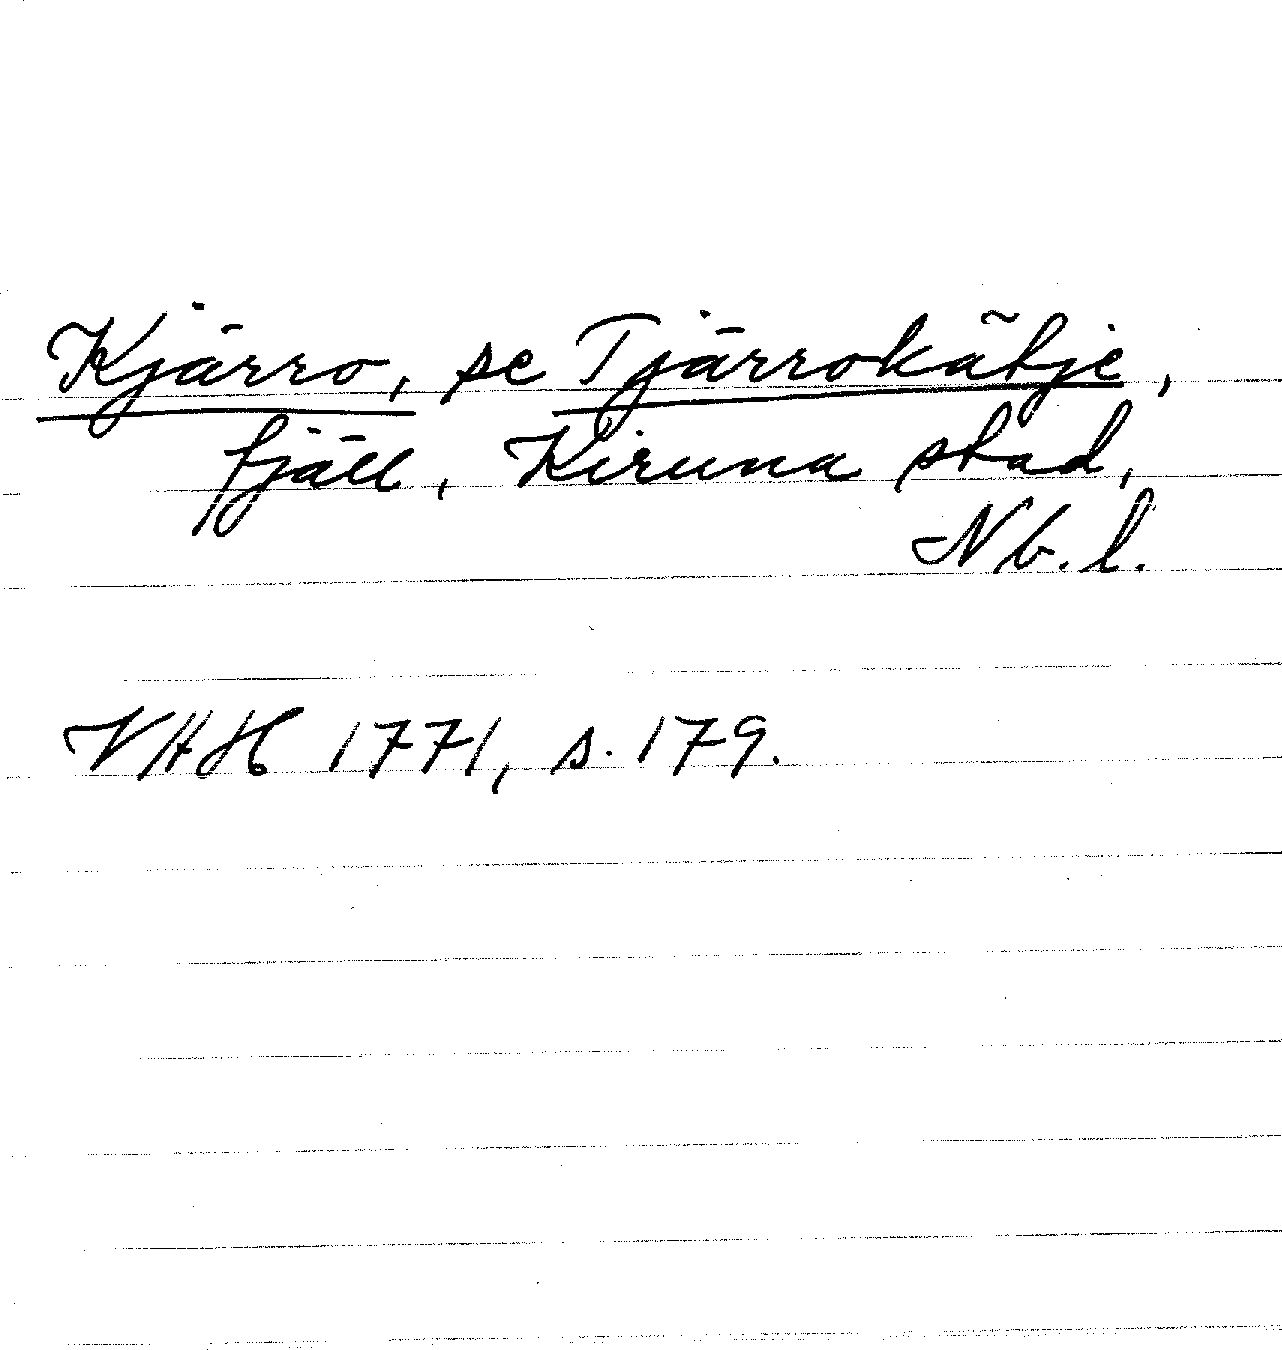 Kjärro, se Tjärrokãtje,
fjäll, Kiruna stad,
Nb.l.
VHH 1771, s. 179.